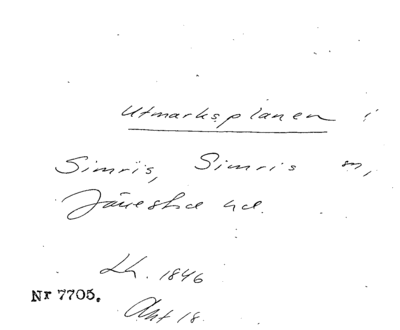 Utmarksplanen i
Simris, Simris sn,
Järrestads hd.
Lh. 1846
Nr 7705.
Akt 18.